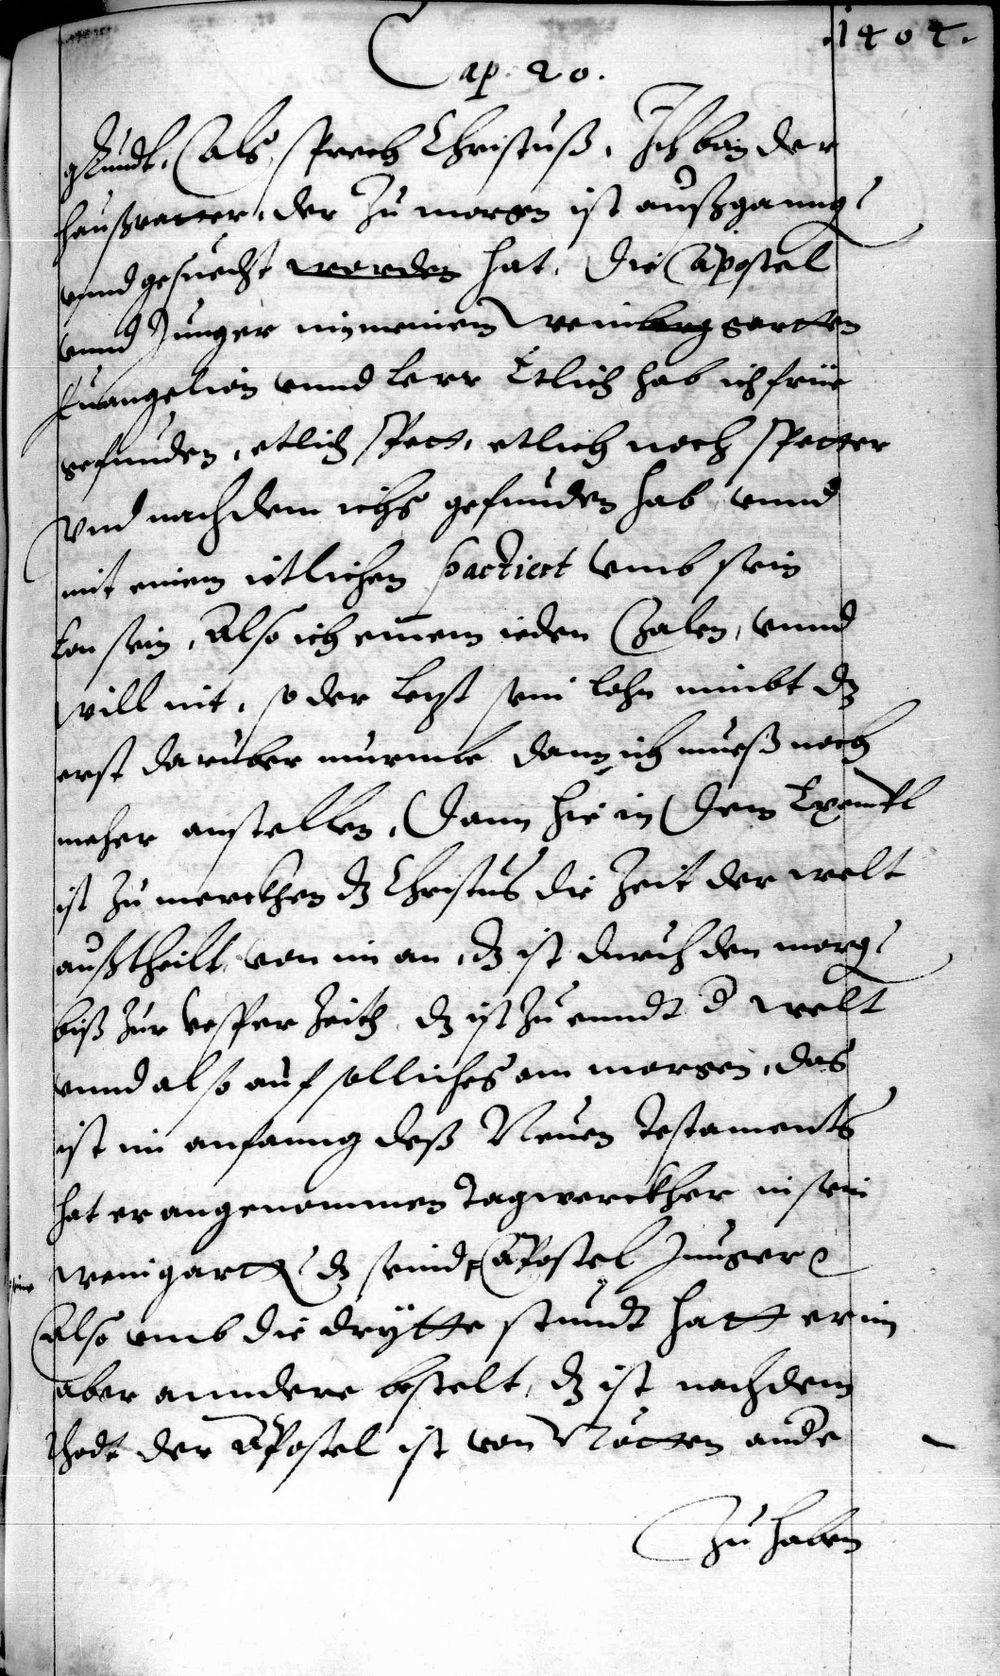 1404.
Cap. 20.
gkundt, Als sprech Christuß, Ich bin der
haußvatter, der zu morgen ist außganng
vnnd gesuecht werden hat, die Apostel
vnnd Junger in meinem weinberg gartten
Euangelion vnnd leer Etlich hab ich früe
gefunden, etlich spett, etlich noch spetter
Vnd nachdem ichs gefunden hab vnnd
mit einem ietlichen pactiert vmb sein
Lon sein, Also ich einem ieden zalen, vnnd
will nit, so der letzt sein lohn nimbt dz
erst daruber murmle dann ich mueß noch
meher anstellen, Dann hie in dem Exempl
ist zu merckhen dz Christus die Zeit der welt
außtheilt von im an, dz ist durch den morg
biß zur Vesper Zeith, dz ist zu enndt d welt
vnnd also auf solliches am morgen, das
ist im anfanng deß Neuen Testaments
hat er angenommen Tagwerckher in sein
weingartt dz seind Apostel Junger
Also vmb die drytte stundt hatt er im
aber anndere bestelt, dz ist nach dem
thodt der Apostel ist von Nötten ande
zu haben